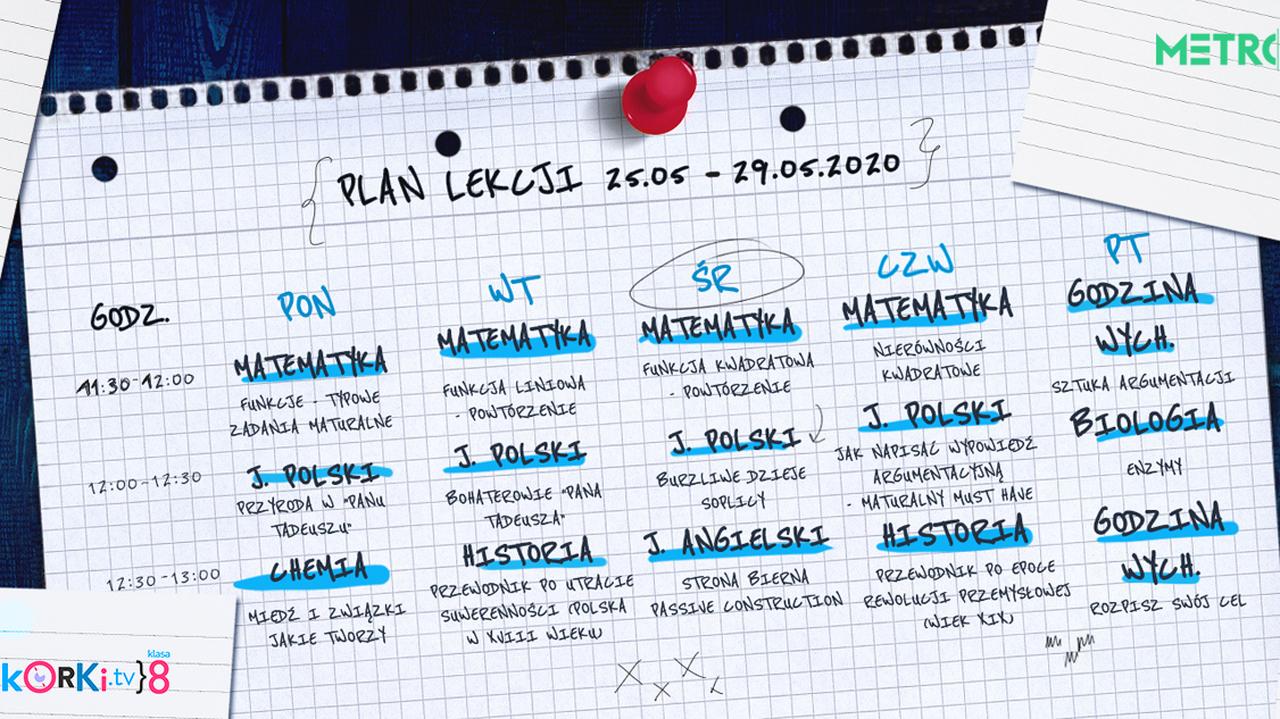 METRO
{ PLAN LEKCJI 25.05 - 29.05.2020 }
GODZ.
PON
WT
ŚR
CZW
PT
11:30-12:00
MATEMATYKA
FUNKCJE - TYPOWE
ZADANIA MATURALNE
MATEMATYKA
FUNKCJA LINIOWA
- POWTÓRZENIE
MATEMATYKA
FUNKCJA KWADRATOWA
- POWTÓRZENIE
MATEMATYKA
NIERÓWNOŚCI
KWADRATOWE
GODZINA
WYCH.
SZTUKA ARGUMENTACJI
12:00-12:30
J. POLSKI
PRZYRODA W "PANU
TADEUSZU"
J. POLSKI
BOHATEROWIE "PANA
TADEUSZA"
J. POLSKI
BURZLIWE DZIEJE
SOPLICY
J. POLSKI
JAK NAPISAĆ WYPOWIEDŹ
ARGUMENTACYJNĄ
- MATURALNY MUST HAVE
BIOLOGIA
ENZYMY
12:30-13:00
CHEMIA
MIEDŹ I ZWIĄZKI
JAKIE TWORZY
HISTORIA
PRZEWODNIK PO UTRACIE
SUWERENNOŚCI (POLSKA
W XVIII WIEKU)
J. ANGIELSKI
STRONA BIERNA
PASSIVE CONSTRUCTION
HISTORIA
PRZEWODNIK PO EPOCE
REWOLUCJI PRZEMYSŁOWEJ
(WIEK XIX)
GODZINA
WYCH.
ROZPISZ SWÓJ CEL
klasa
kORKi.tv}8